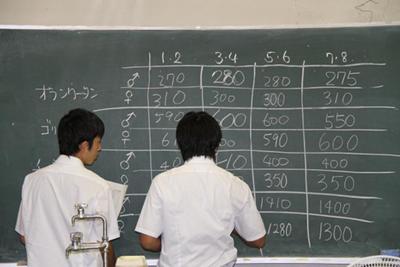 1・2 3・4 5・6 7・8
オランウータン ♂ 270 280 280 275
♀ 310 300 300 310
ゴリ ♂ 590 600 550
♀ 590 600
♂ 400 400 400
♀ 350 350
♂ 1410 1400
1280 1300